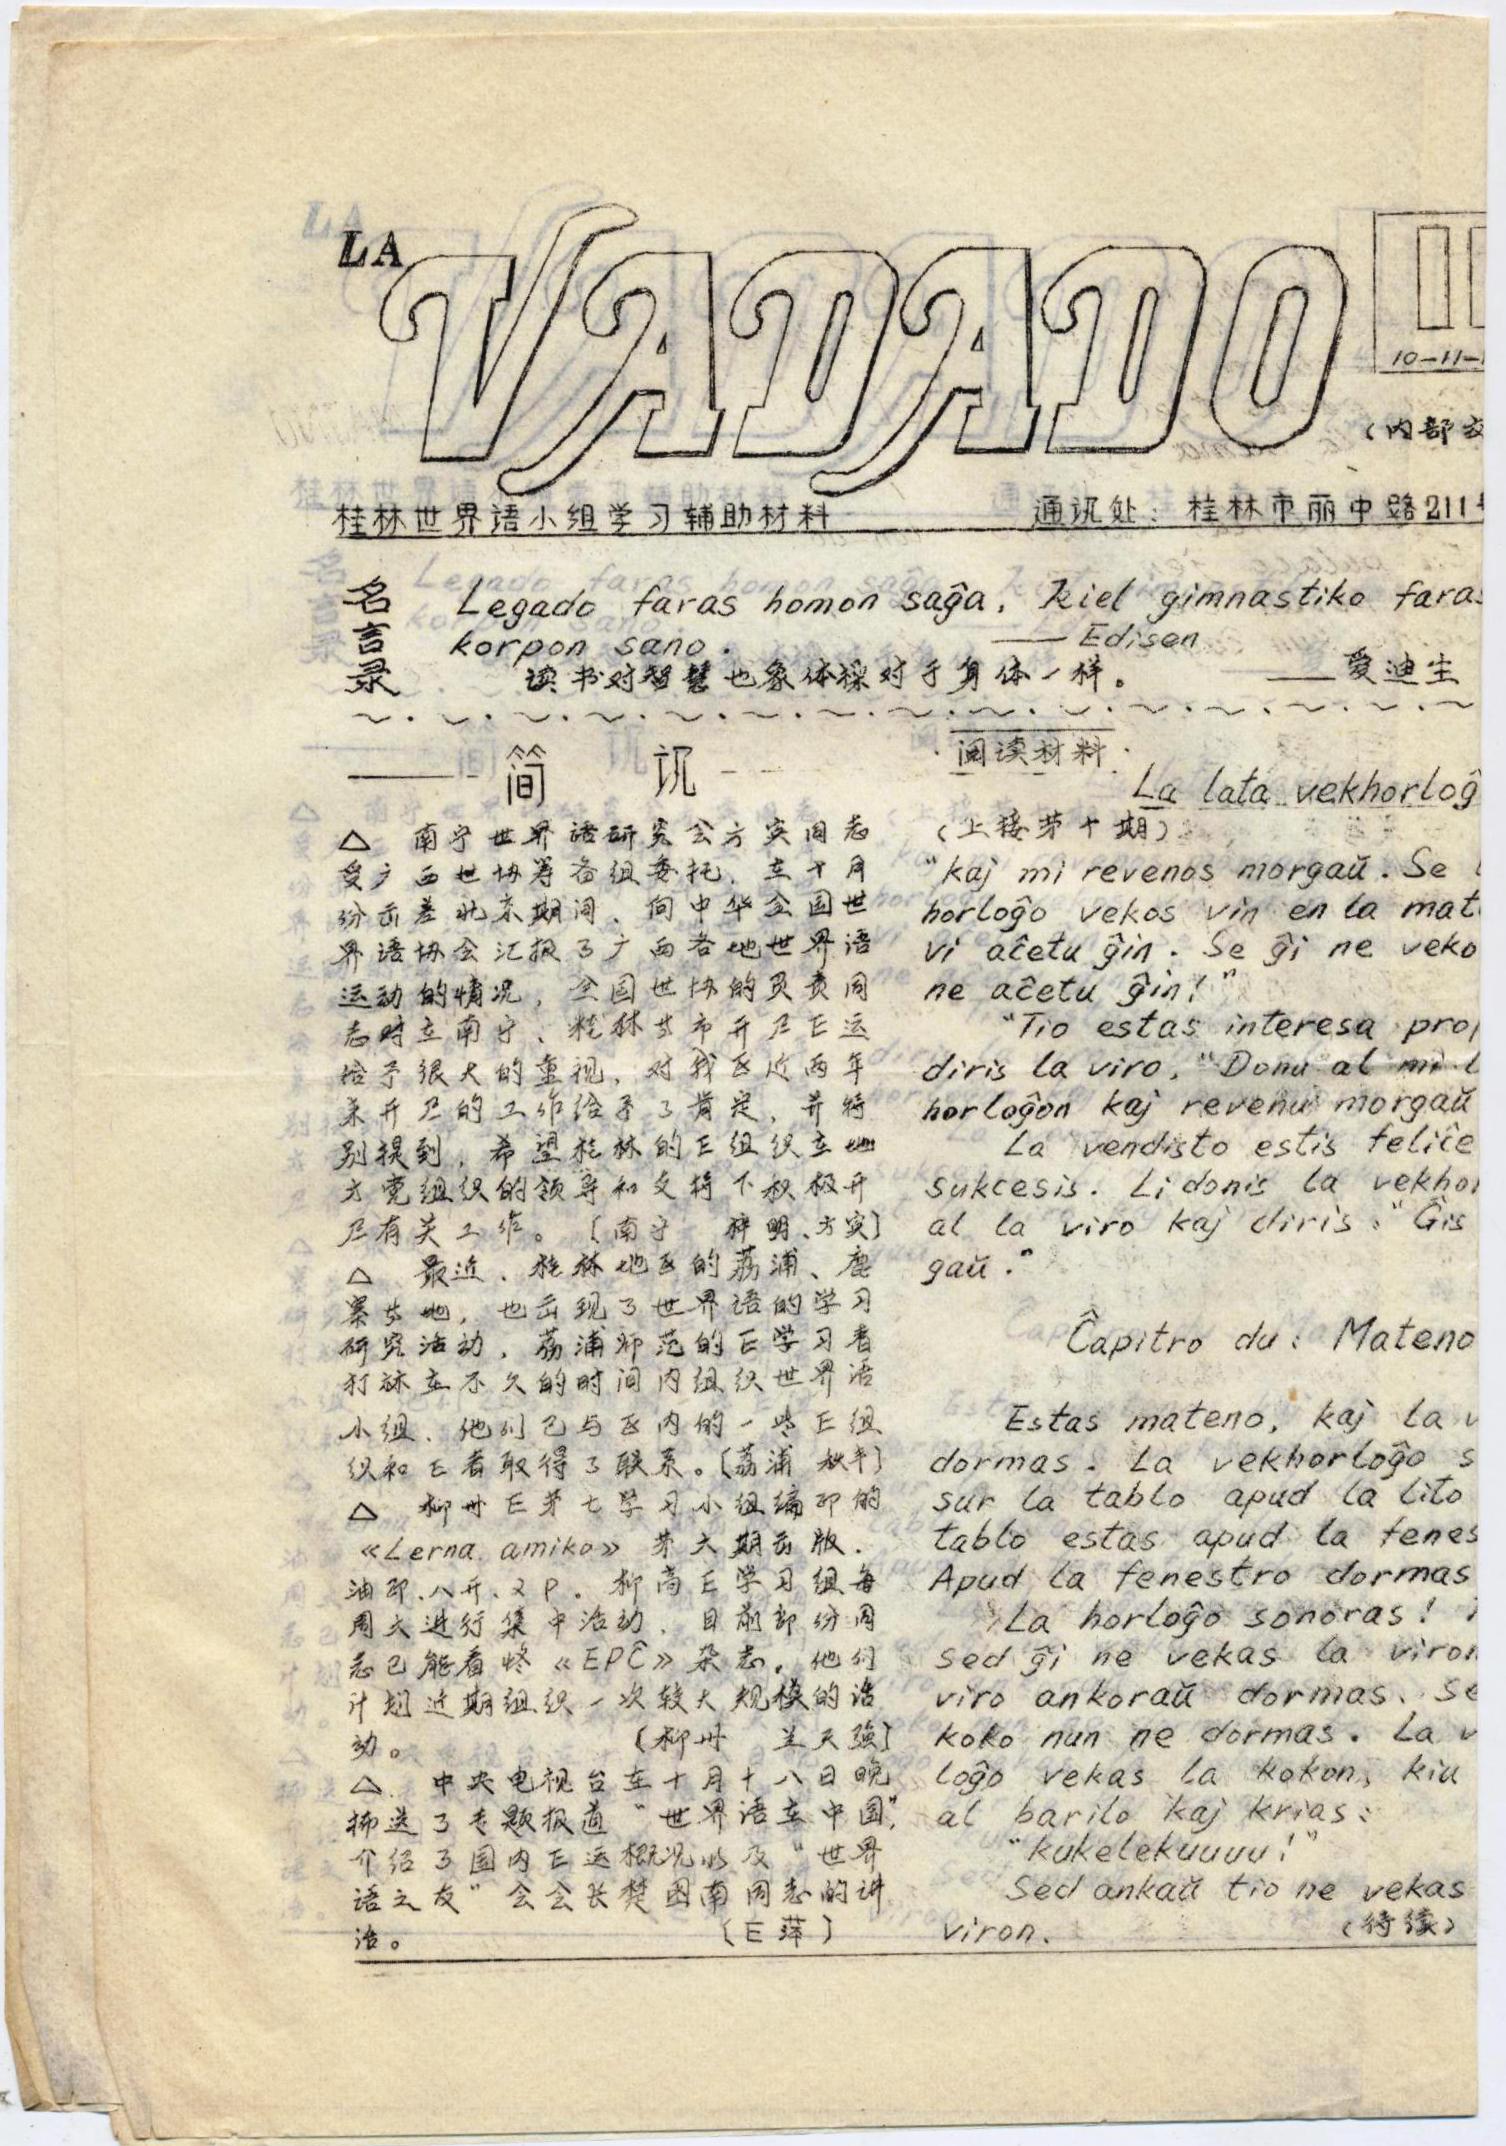 LA VADADO
11
10-11-1
(内部交
桂林世界语小组学习辅助材料
通讯处：桂林市丽中路211号
名言录
Legado faras homon saĝa, kiel gimnastiko faras
korpon sano.
—— Edisen
读书对智慧也象体操对于身体一样。
——爱迪生
简 讯
△ 南宁世界语研究会方实同志
受广西世协筹备组委托，在十月
份出差北京期间，向中华全国世
界语协会汇报了广西各地世界语
运动的情况，全国世协的负责同
志对在南宁、桂林等市开展E运
给予很大的重视，对我区近两年
来开展的工作给予了肯定，并特
别提到，希望桂林的E组织在地
方党组织的领导和支持下积极开
展有关工作。〔南宁 明、方实〕
△ 最近，桂林地区的荔浦、鹿
寨等地，也出现了世界语的学习
研究活动，荔浦师范的E学习者
打算在不久的时间内组织世界语
小组，他们已与区内的一些E组
织和E者取得了联系。〔荔浦 秋平〕
△ 柳州E第七学习小组编印的
«Lerna amiko» 第六期出版．
油印、八开、2P．柳高E学习组每
周六进行集中活动，目前部份同
志已能看懂《EPĈ》杂志，他们
计划近期组织一次较大规模的活
动。 〔柳州 兰天强〕
△ 中央电视台在十月十八日晚
播送了专题报道“世界语在中国”，
介绍了国内E运概况以及“世界
语之友”会会长楚图南同志的讲
话。 〔E萍〕
阅读材料
La lata vekhorloĝ
(上接第十期)
"kaj mi revenos morgaŭ. Se l
horloĝo vekos vin en la mat
vi aĉetu ĝin. Se ĝi ne veko
ne aĉetu ĝin!"
"Tio estas interesa prop
diris la viro, "Donu al mi l
horloĝon kaj revenu morgaŭ
La vendisto estis feliĉe
sukcesis. Li donis la vekhor
al la viro kaj diris: "Ĝis
gaŭ."
Ĉapitro du: Mateno
Estas mateno, kaj la v
dormas. La vekhorloĝo s
sur la tablo apud la lito
tablo estas apud la fenes
Apud la fenestro dormas
La horloĝo sonoras!
sed ĝi ne vekas la viron
viro ankoraŭ dormas. Se
koko nun ne dormas. La v
loĝo vekas la kokon, kiu
al barilo kaj krias:
"kukelekuuuu!"
Sed ankaŭ tio ne vekas
viron. (待续)